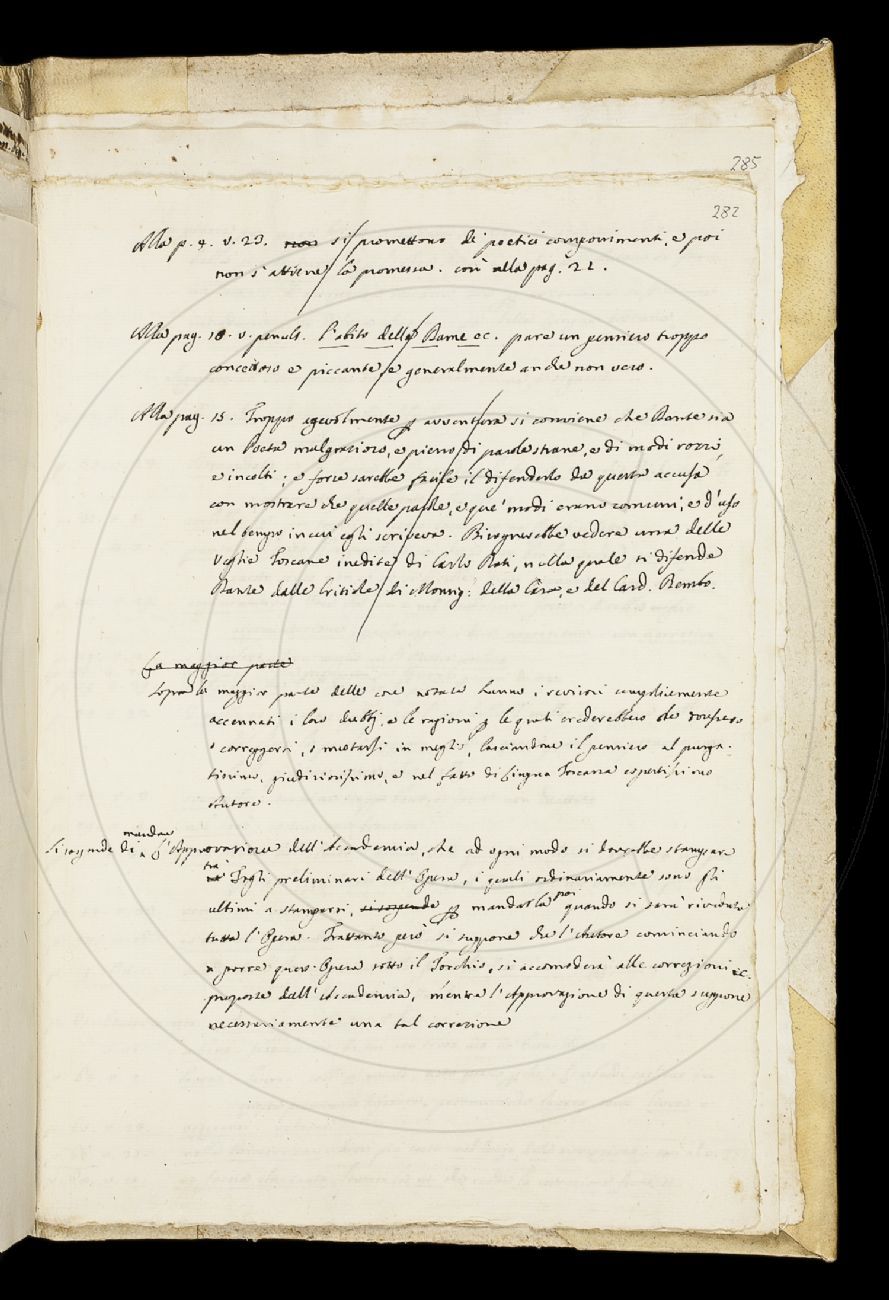 285
282
Alla p. 8. v. 23. non si promettono de' poetici componimenti, e poi
non s'attiene la promessa. così alla pag. 22.
Alla pag. 18. v. penult. L'abito delle Dame ec. pare un pensiero troppo
concettoso e piccante, e generalmente anche non vero.
Alla pag. 15. Troppo agevolmente p avventura si conviene che Dante sia
un Poeta malgrazioso, e pieno di parole strane, e di modi rozzi,
e incolti; e forse sarebbe facile il difenderlo da questa accusa
con mostrare che quelle parole, e que' modi erano comuni, e d'uso
nel tempo in cui egli scriveva. Bisognerebbe vedere una delle
Veglie Toscane inedite di Carlo Dati, nella quale si difende
Dante dalle Critiche di Monsig: della Casa, e del Card. Bembo.
La maggior parte
Sopra la maggior parte delle cose notate hanno i revisori semplicemente
accennati i loro dubbj, e le ragioni p le quali crederebbero che
o correggersi, o mutarsi in meglio, lasciandone il pensiero al purga-
tissimo, giudiziosissimo, e nel fatto di Lingua Toscana espertissimo
Autore.
mandare
Si sospende di L'Approvazione dell'Accademia, che ad ogni modo si dovrebbe stampare
tra'
Fogli preliminari dell'Opera, i quali ordinariamente sono gli
poi
ultimi a stamparsi, si sospende p mandarla quando si sarà riveduta
tutta l'Opera. Frattanto però si suppone che l'Autore cominciando
a porre quest'Opera sotto il Torchio, si accomoderà alle correzioni ec.
proposte dall'Accademia, mentre l'Approvazione di questa suppone
necessariamente una tal correzione